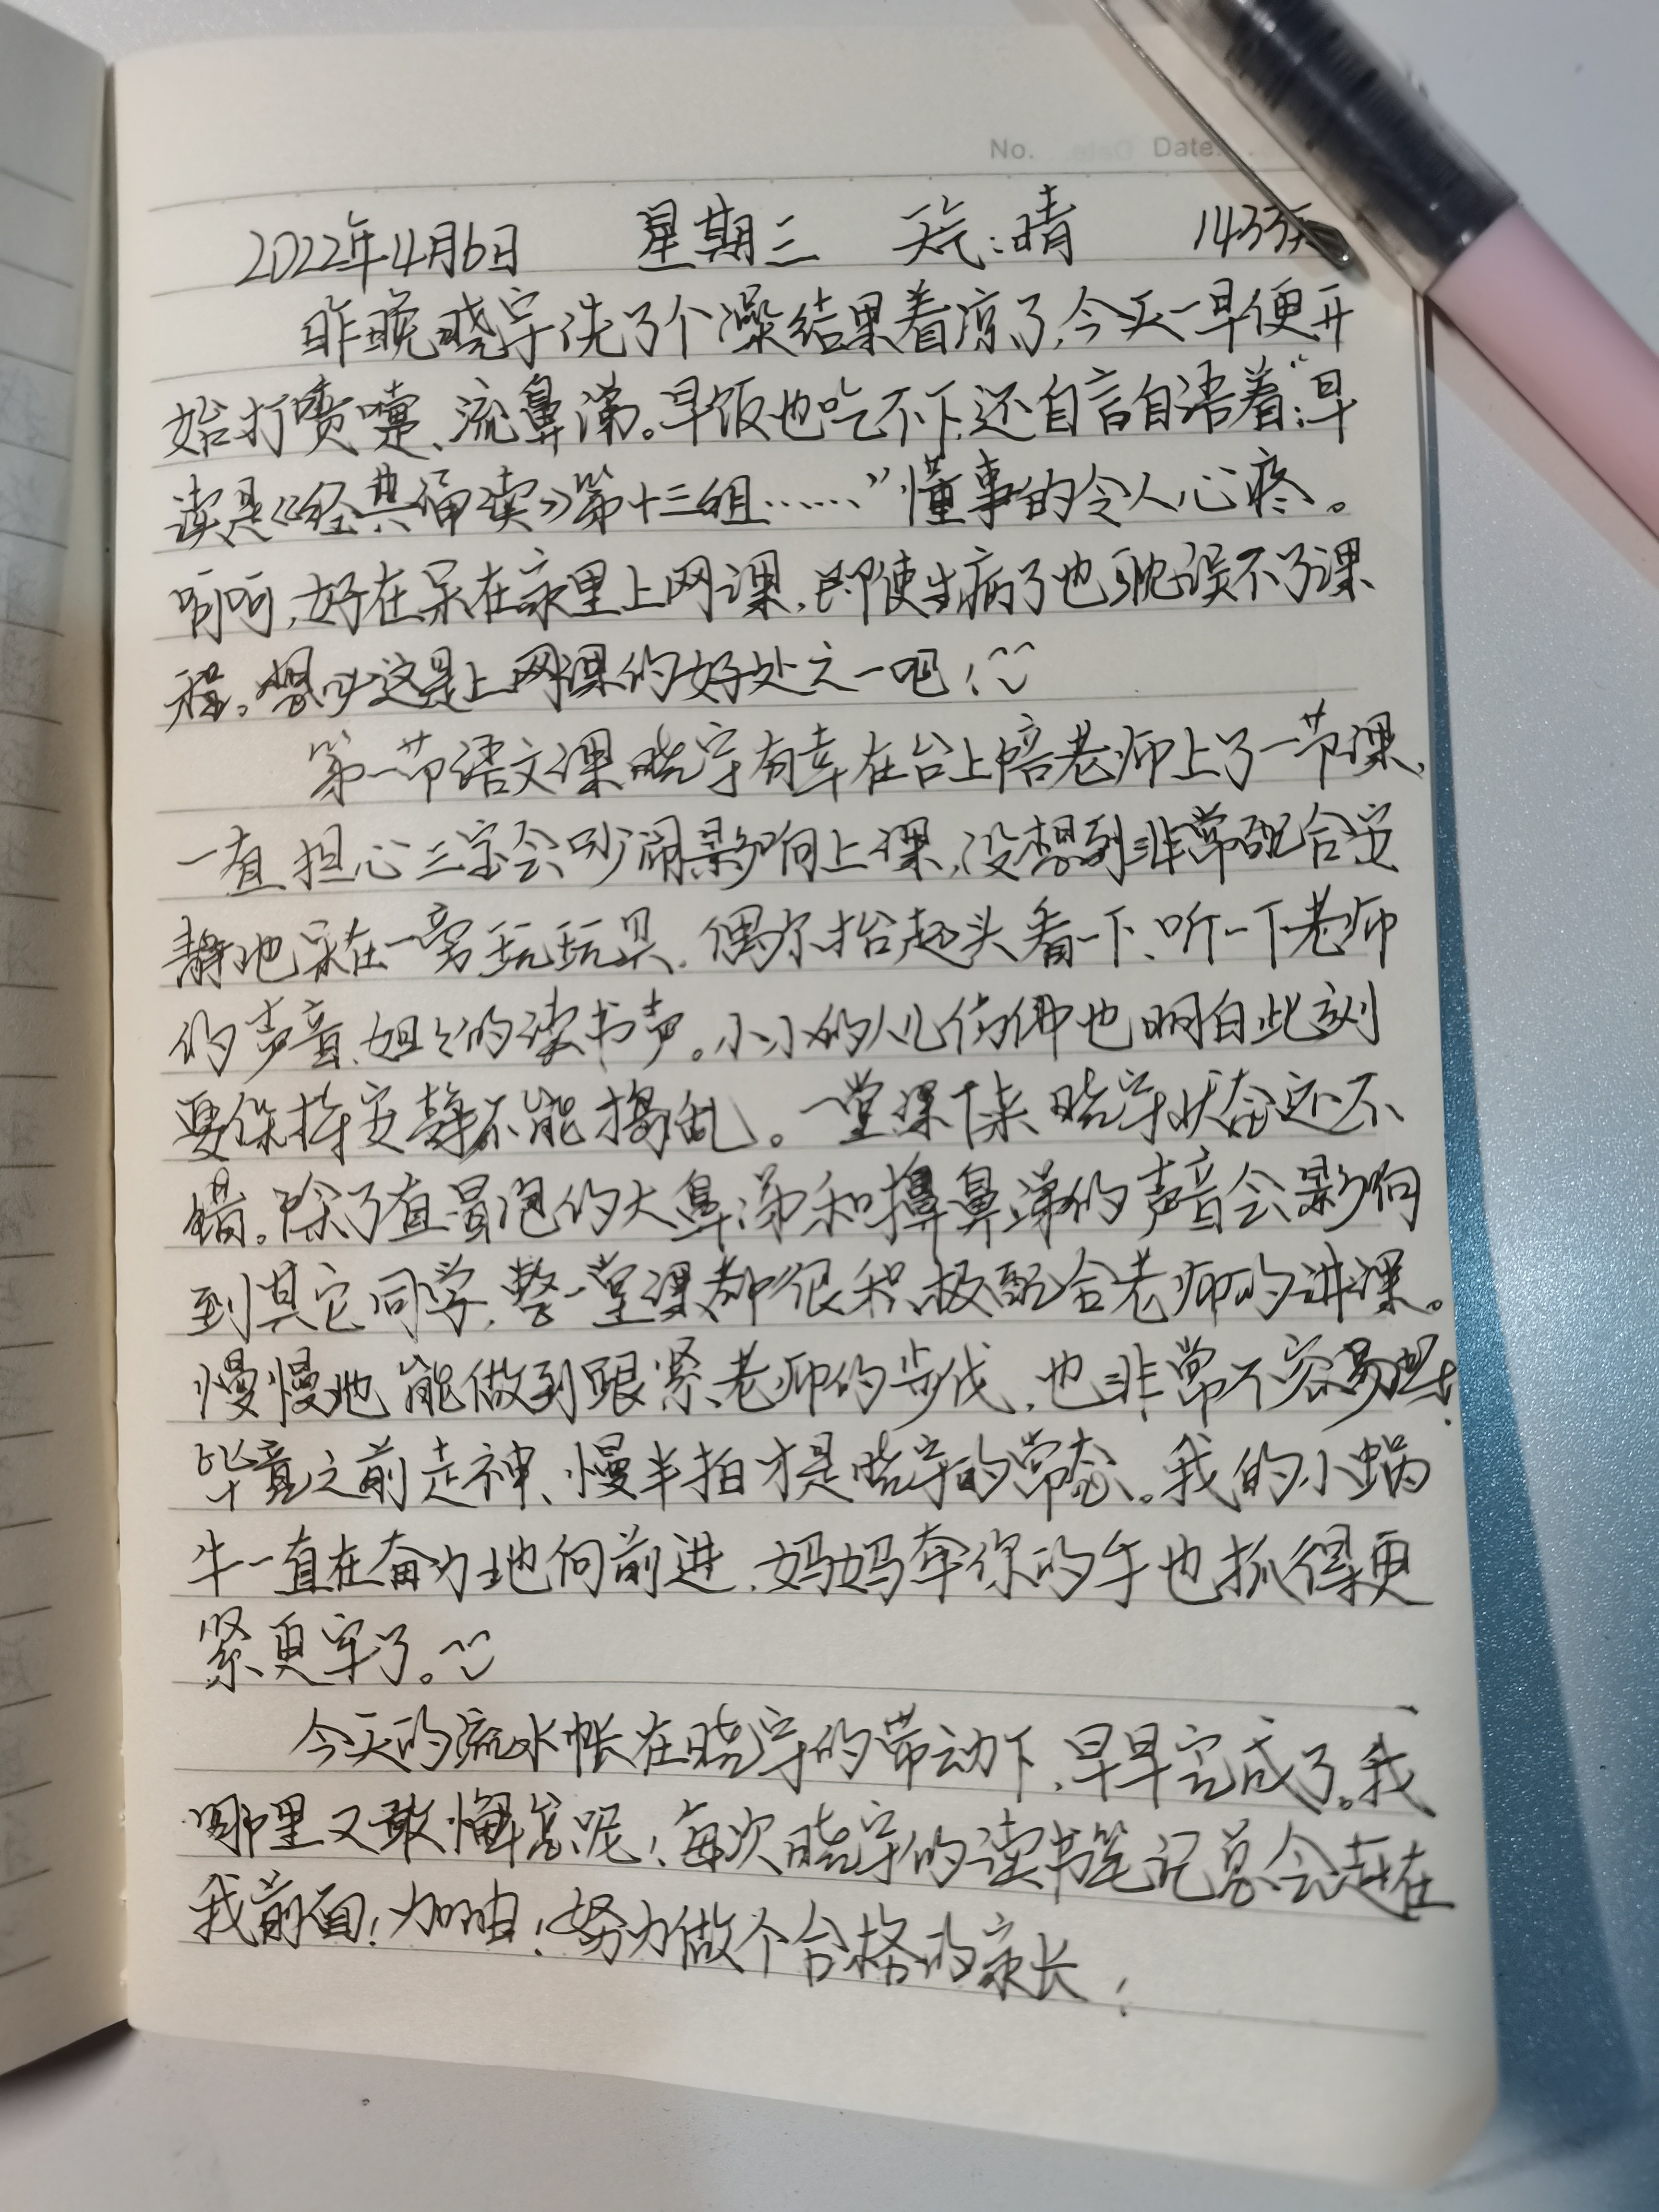 No. Date.
2022年4月6日 星期三 天气:晴 1433天
昨晚晓宇洗了个澡结果着凉了,今天一早便开
始打喷嚏、流鼻涕。早饭也吃不下,还自言自语着:“早
读是《经典诵读》第十三组……”懂事的令人心疼。
呵呵,好在呆在家里上网课,即使生病了也耽误不了课
程。想必这是上网课的好处之一吧!
第一节语文课晓宇有幸在台上陪老师上了一节课,
一直担心三宝会吵闹影响上课,没想到非常配合安
静地呆在一旁玩玩具,偶尔抬起头看一下、听一下老师
的声音、姐姐的读书声。小小的人儿仿佛也明白此刻
要保持安静不能捣乱。一堂课下来晓宇状态还不
错。除了直冒泡的大鼻涕和擤鼻涕的声音会影响
到其它同学,整堂课都很积极配合老师的讲课。
慢慢地能做到跟紧老师的步伐,也非常不容易啦!
毕竟之前走神、慢半拍才是晓宇的常态。我的小蜗
牛一直在奋力地向前进,妈妈牵你的手也抓得更
紧更牢了。
今天的流水帐在晓宇的带动下,早早完成了。我
哪里又敢懈怠呢!每次晓宇的读书笔记总会赶在
我前面!加油!努力做个合格的家长!